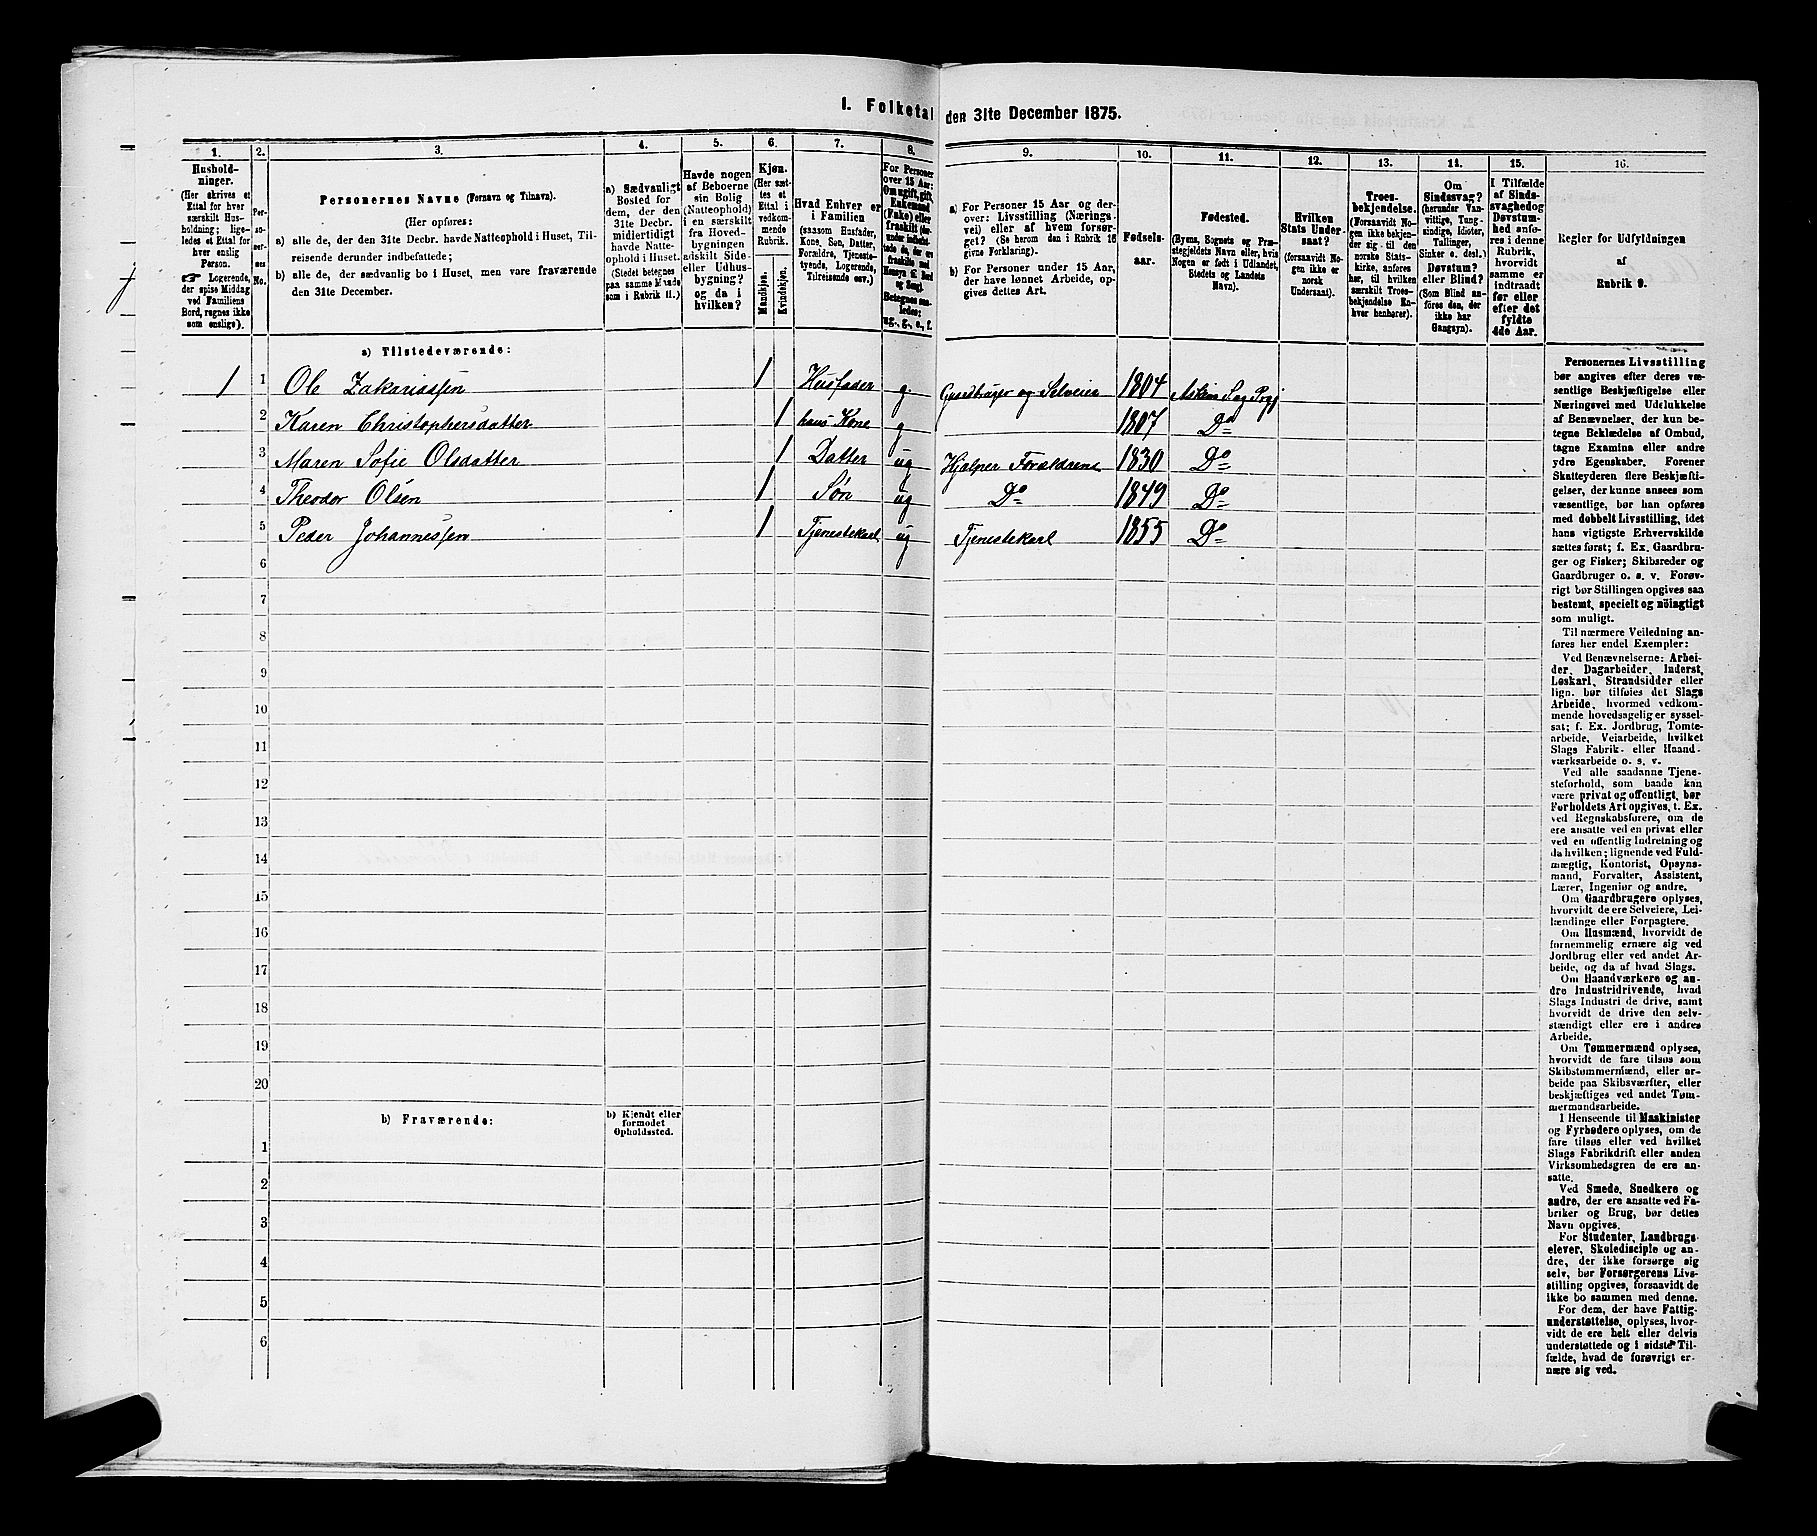 1. Folketal den 31te December 1875.
1.
Hushold-
ninger.
(Her skrives et
Ettal for hver
særskilt Hus-
holdning; lige-
ledes et Ettal for
hver enslig
Person.
☞ Logerende,
der spise Middag
ved Familiens
Bord, regnes ikke
som enslige).
2.
Per-
so-
ner-
nes
No.
3.
Personernes Navne (Fornavn og Tilnavn).
(Her opføres:
a) alle de, der den 31te Decbr. havde Natteophold i Huset, Til-
reisende derunder indbefattede;
b) alle de, der sædvanlig bo i Huset, men vare fraværende
den 31te December.
4.
a) Sædvanligt
Bosted for
dem, der den
31te Decbr.
midlertidigt
havde Natte-
ophold i Huset.
(Stedet betegnes
paa samme Maade
som i Rubrik 11.)
5.
Havde nogen
af Beboerne
sin Bolig
(Natteophold)
i en særskilt
fra Hoved-
bygningen
adskilt Side-
eller Udhus-
bygning?
og da i
hvilken?
6.
Kjøn.
(Her sæt-
tes et
Ettal i
vedkom-
mende
Rubrik.
Mandkjøn.
Kvindekjøn.
7.
Hvad Enhver er
i Familien
(saasom Husfader,
Kone, Søn, Datter,
Forældre, Tjeneste-
tyende, Logerende,
Tilreisende osv.)
8.
For Personer
over 15 Aar:
Om ugift, gift,
Enkemand
(Enke) eller
fraskilt
Betegnes saa-
ledes:
ug., g., e., f.
9.
a) For Personer 15 Aar og der-
over: Livsstilling (Nærings-
vei) eller af hvem forsør-
get? (Se herom den i Rubrik 16
givne Forklaring).
b) For Personer under 15 Aar,
der have lønnet Arbeide, op-
gives dettes Art.
10.
Fødsels-
aar.
11.
Fødested.
(Byens, Sognets og Præ-
stegjeldets Navn eller, hvis
Nogen er født i Udlandet,
Stedets og Landets
Navn).
12.
Hvilken
Stats Under-
saat?
(forsaavidt No-
gen ikke er
norsk
Undersaat).
13.
Troes-
bekjendelse.
(Forsaavidt No-
gen ikke bekjen-
der sig til den
norske Stats-
kirke, anføres
her, til hvilken
særskilt Troes-
bekjendelse En-
hver henhører).
14.
Om
Sindssvag?
(herunder Van-
vittige, Tung-
sindige, Idioter,
Tullinger,
Sinker o. desl.)
Døvstum?
eller Blind?
(Som Blind an-
føres den, der
ikke har
Gangsyn).
15.
I Tilfælde
af Sinds-
svaghed og
Døvstum-
hed anfø-
res i denne
Rubrik,
hvorvidt
samme er
indtraadt
før eller
efter det
fyldte
4de Aar.
16.
Regler for Udfyldningen
af
Rubrik 9.
a) Tilstedeværende:
1 1 Ole Zakariassen 1 Husfader g Gaardbruger og Selveier 1804
2 Karen Christophersdatter 1 hans Kone g 1807 Do
3 Maren Sofie Olsdatter 1 Datter ug Hjælper Forældrene 1830 Do
4 Theodor Olsen 1 Søn ug Do 1849 Do
5 Peder Johannessen 1 Tjenestekarl ug Tjenestekarl 1855 Do
6
7
8
9
10
11
12
13
14
15
16
17
18
19
20
b) Fraværende:
b) Kjendt eller
formodet
Opholdssted.
1
2
3
4
5
6
Personernes Livsstilling
bør angives efter deres væ-
sentlige Beskjæftigelse eller
Næringsvei med Udelukkelse
af Benævnelser, der kun be-
tegne Beklædelse af Ombud,
tagne Examina eller andre
ydre Egenskaber. Forener
Skatteyderen flere Beskjæfti-
gelser, der kunne ansees som
væsentlige, bør han opføres
med dobbelt Livsstilling, idet
hans vigtigste Erhvervskilde
sættes først; f. Ex. Gaardbru-
ger og Fisker; Skibsreder og
Gaardbruger o. s. v. Forøv-
rigt bør Stillingen opgives saa
bestemt, specielt og nöiagtigt
som muligt.
Til nærmere Veiledning an-
føres her endel Exempler:
Ved Benævnelserne: Arbei-
der, Dagarbeider, Inderst,
Løskarl, Strandsidder eller
lign. bør tilføies det Slags
Arbeide, hvormed vedkom-
mende hovedsagelig er syssel-
sat; f. Ex. Jordbrug, Tomte-
arbeide, Veiarbeide, hvilket
Slags Fabrik- eller Haand-
værksarbeide o. s. v.
Ved alle saadanne Tjene-
steforhold, som baade kan
være privat og offentligt, bør
Forholdets Art opgives, t. Ex.
ved Regnskabsførere, om de
ere ansatte ved en privat eller
ved en offentlig Indretning og
da hvilken; lignende ved Fuld-
mægtig, Kontorist, Opsyns-
mand, Forvalter, Assistent,
Lærer, Ingeniør og andre.
Om Gaardbrugere oplyses,
hvorvidt de ere Selveiere, Lei-
lændinge eller Forpagtere.
Om Husmænd, hvorvidt de
fornemmelig ernære sig ved
Jordbrug eller ved andet Ar-
beide, og da af hvad Slags.
Om Haandværkere og an-
dre Industridrivende, hvad
Slags Industri de drive, samt
hvorvidt de drive den selv-
stændigt eller ere i andres
Arbeide.
Om Tømmermænd oplyses,
hvorvidt de fare tilsøs som
Skibstømmermænd, eller ar-
beide paa Skibsværfter, eller
beskjæftiges ved andet Tøm-
mermandsarbeide.
I Henseende til Maskinister
og Fyrbødere oplyses, om de
fare tilsøs eller ved hvilket
Slags Fabrikdrift eller anden
Virksomhedsgren de ere an-
satte.
Ved Smede, Snedkere og
andre, der ere ansatte ved Fa-
briker og Brug, bør dettes
Navn opgives.
For Studenter, Landbrugs-
elever, Skoledisciple og an-
dre, der ikke forsørge sig
selv, bør Forsørgerens Livs-
stilling opgives, forsaavidt de
ikke bo sammen med denne.
For dem, der have Fattig-
understøttelse, oplyses, hvor-
vidt de ere helt eller delvis
understøttede og i sidste Til-
fælde, hvad de forøvrigt er-
nære sig ved.